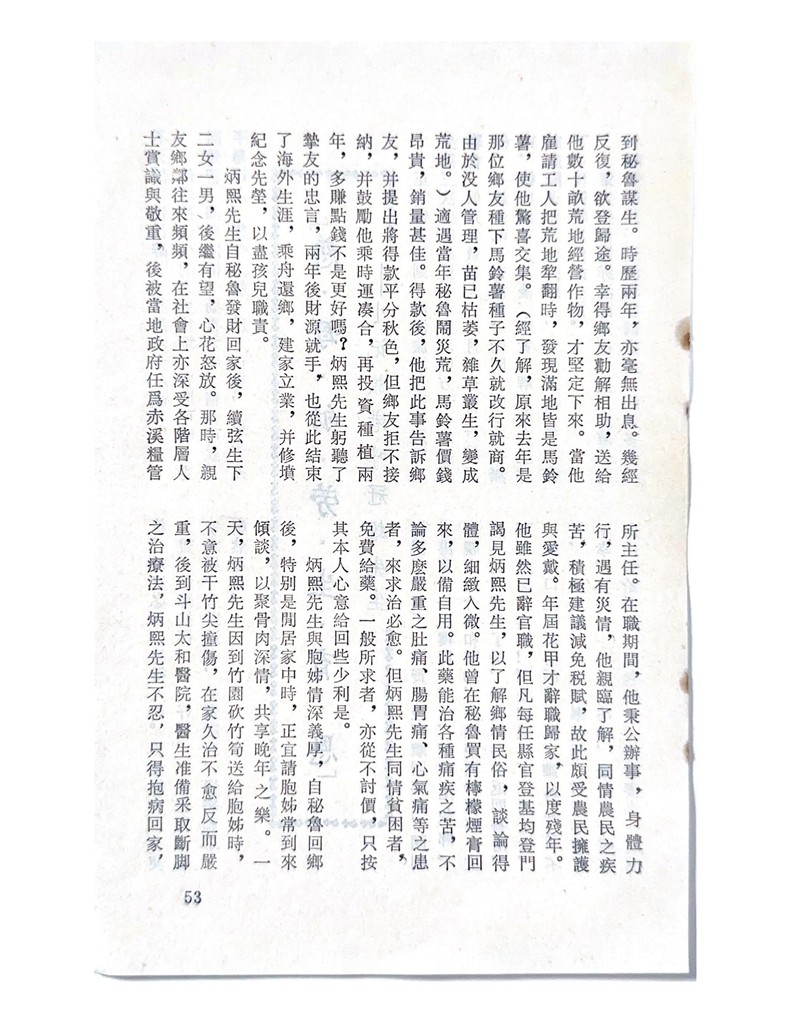 到秘魯謀生。時歷兩年，亦毫無出息。幾經
反復，欲登歸途。幸得鄉友勸解相助，送給
他數十畝荒地經營作物，才堅定下來。當他
雇請工人把荒地犁翻時，發現滿地皆是馬鈴
薯，使他驚喜交集。（經了解，原來去年是
那位鄉友種下馬鈴薯種子不久就改行就商。
由於没人管理，苗已枯萎，雜草叢生，變成
荒地。）適遇當年秘魯鬧災荒，馬鈴薯價錢
昂貴，銷量甚佳。得款後，他把此事告訴鄉
友，并提出將得款平分秋色，但鄉友拒不接
納，并鼓勵他乘時運凑合，再投資種植兩
年，多賺點錢不是更好嗎？炳熙先生躬聽了
摯友的忠言，兩年後財源就手，也從此結束
了海外生涯，乘舟還鄉，建家立業，并修墳
紀念先塋，以盡孩兒職責。
炳熙先生自秘魯發財回家後，續弦生下
二女一男，後繼有望，心花怒放。那時，親
友鄉鄰往來頻頻，在社會上亦深受各階層人
士賞識與敬重，後被當地政府任爲赤溪糧管
所主任。在職期間，他秉公辦事，身體力
行，遇有災情，他親臨了解，同情農民之疾
苦，積極建議減免税賦，故此頗受農民擁護
與愛戴。年屆花甲才辭職歸家，以度殘年。
他雖然已辭官職，但凡每任縣官登基均登門
謁見炳熙先生，以了解鄉情民俗，談論得
體，細緻入微。他曾在秘魯買有檸檬煙膏回
來，以備自用。此藥能治各種痛疾之苦，不
論多麼嚴重之肚痛、腸胃痛、心氣痛等之患
者，來求治必愈。但炳熙先生同情貧困者，
免費給藥。一般所求者，亦從不討價，只按
其本人心意給回些少利是。
炳熙先生與胞姊情深義厚，自秘魯回鄉
後，特别是閒居家中時，正宜請胞姊常到來
傾談，以聚骨肉深情，共享晚年之樂。一
天，炳熙先生因到竹園砍竹筍送給胞姊時，
不意被干竹尖撞傷，在家久治不愈反而嚴
重，後到斗山太和醫院，醫生准備采取斷脚
之治療法，炳熙先生不忍，只得抱病回家，
53